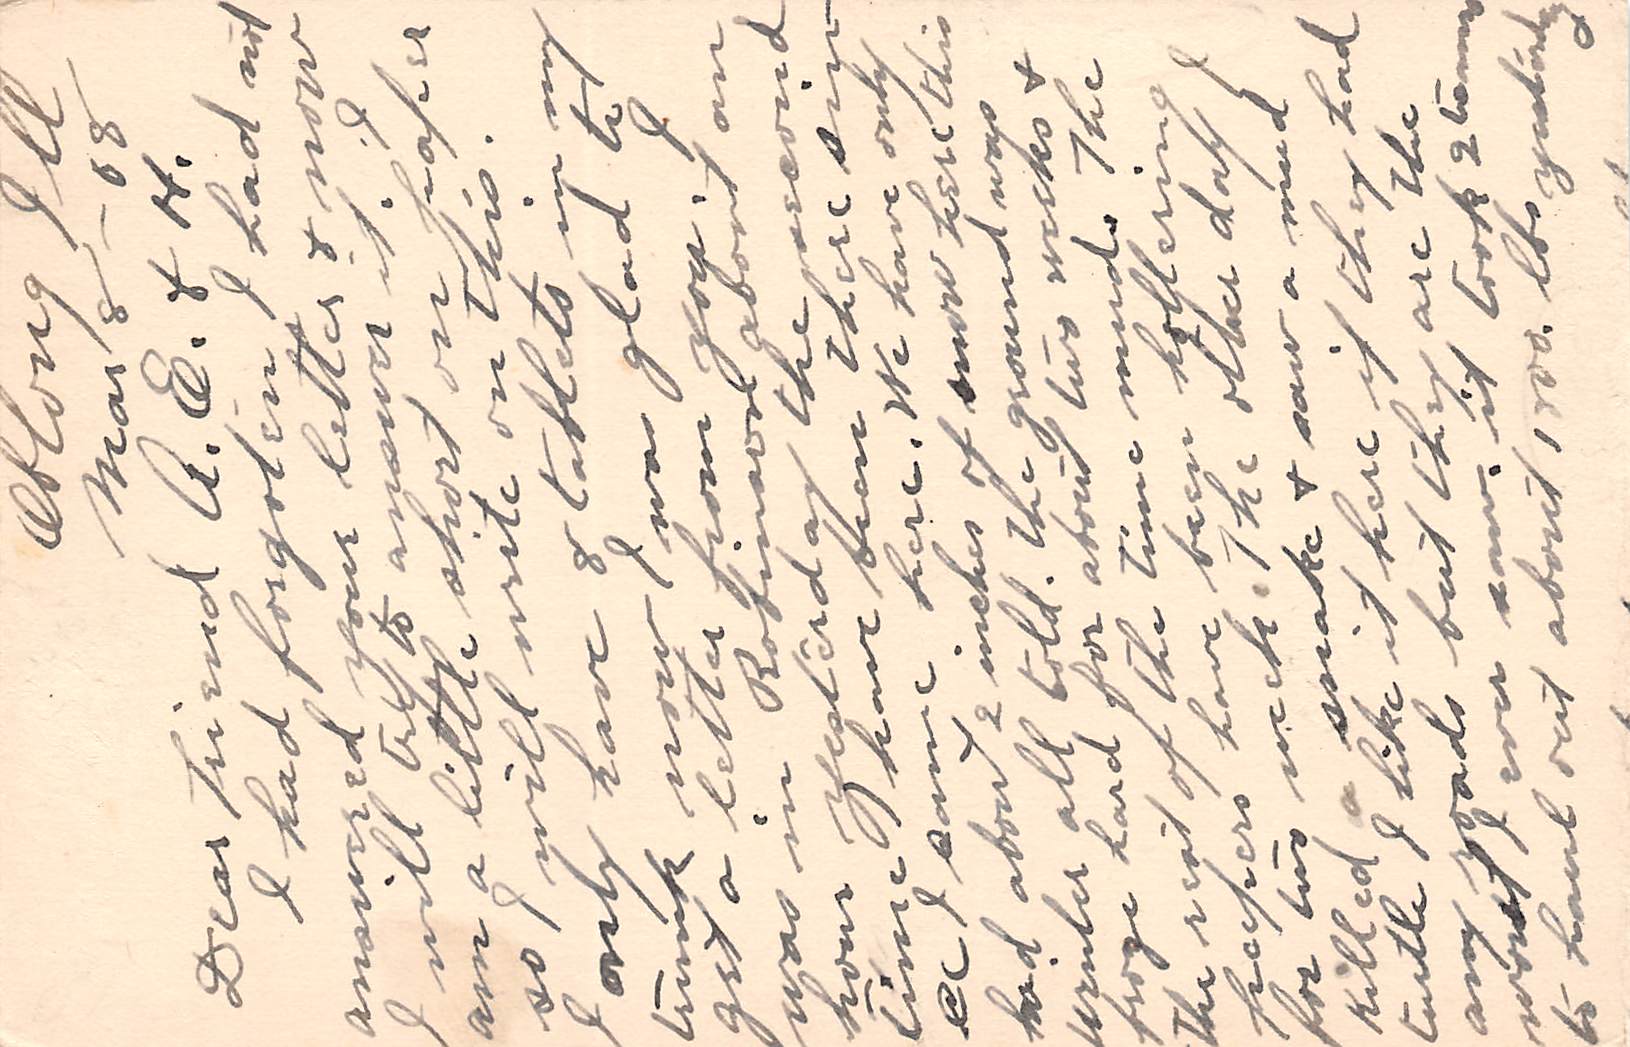 Oblong Ill
Mar 8 - 08
Dear Friend A. E. & H.
I had forgoten I had not
answered your letter & now
I will try to answer it. I
am a little short on paper
so I will write on this.
I only have 8 tablets in my
trunk now I was glad to
get a letter from you. I
was in Robinson about an
hour yesterday the second
time I have been there sin-
ce I came here. We have only
had about 2 inches of snow here this
winter all told. the ground was
froze hard for about two weeks &
the rest of the time mud. The
peepers have been hollering
for two weeks. The other day I
killed a snake & saw a mud
turtle I like it here if they had
any roads but they are the
worst I ever saw. it took 2 teams
to haul out about 1200. lbs yesterday